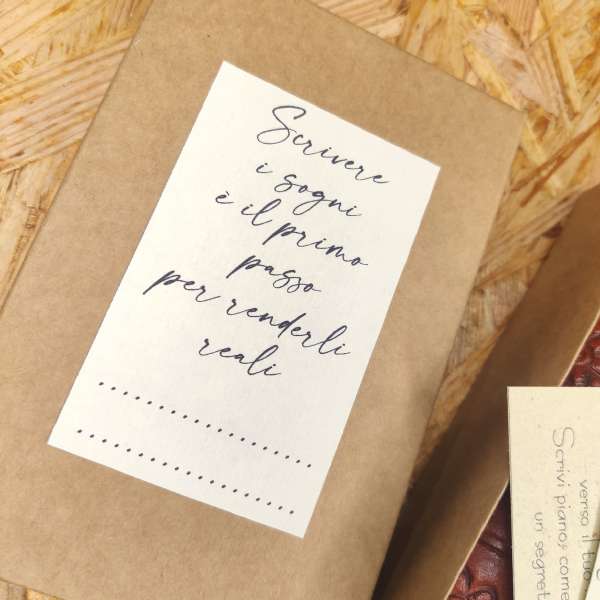 Scrivere
i sogni
è il primo
passo
per renderli
reali
verso il tuo
Scrivi piano, come
un segret